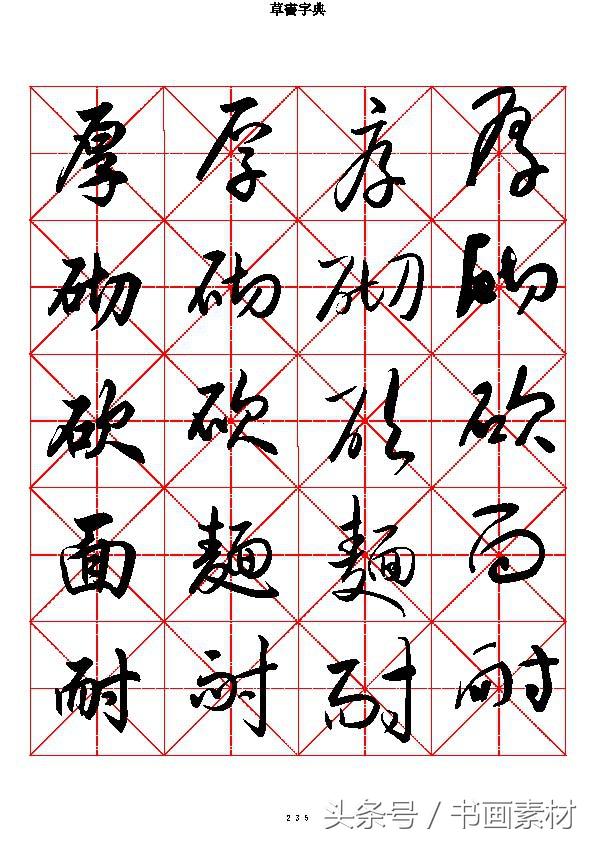 草書字典
厚厚厚厚
砌砌砌砌
砍砍砍砍
面麵麵面
耐耐耐耐
235
头条号 / 书画素材